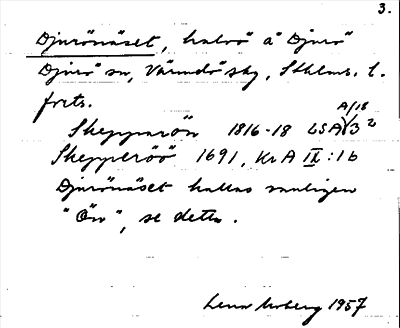 3.
Djurönäset, halvö å Djurö
Djurö sn, Värmdö skg, Sthlms. l.
forts.
A/18
Skepparön 1816-18 LSA γ3 2
Skepperöö 1691, KrA IX:1b
Djurönäset kallas vanligen
"Ön", se detta.
Lena Moberg 1957